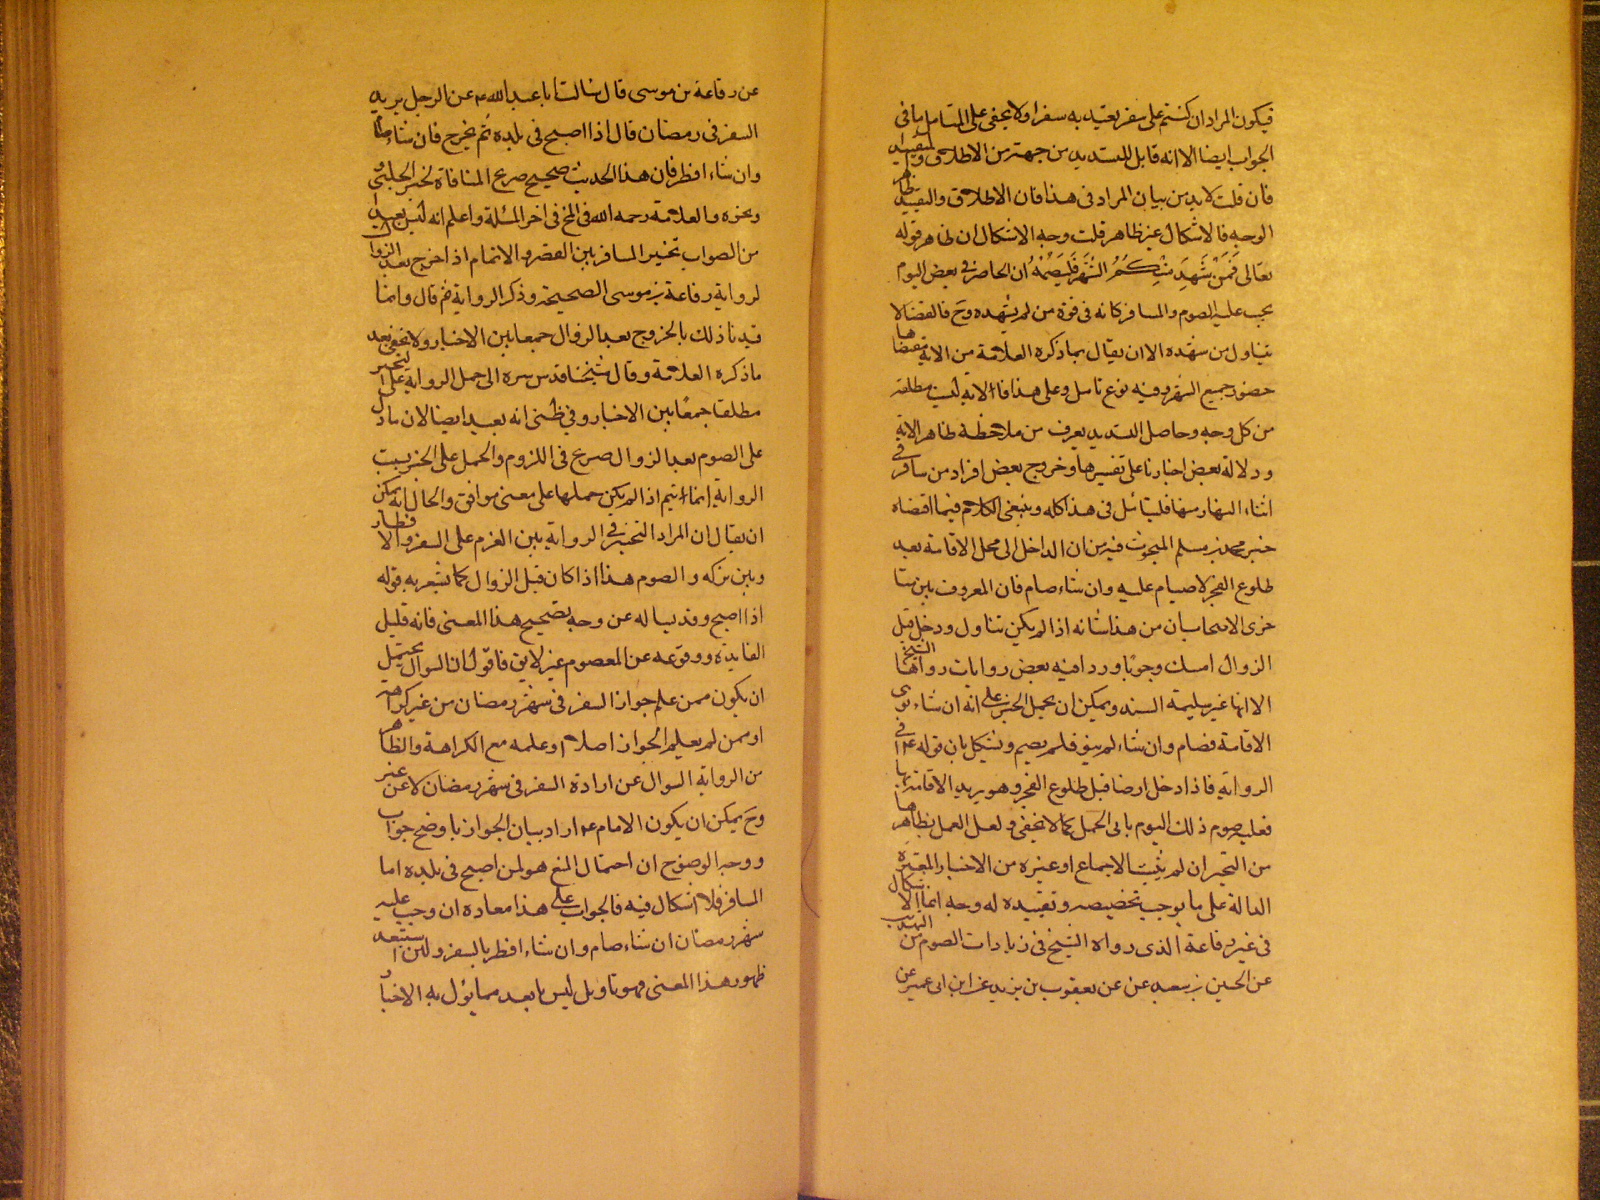 فيكون المراد ان كنتم على سفر يعتد به سفرا ولا يخفى على المتامل ما في
الجواب ايضا الا انه قابل للتسديد من جهة من الاطلاق والتقييد
فان قلت لا بد من بيان المراد في هذا فان الاطلاق والتقييد ظاهر
الوجه فالاشكال غير ظاهر قلت وجه الاشكال ان ظاهر قوله
تعالى فَمَنْ شَهِدَ مِنْكُمُ الشَّهْرَ فَلْيَصُمْهُ ان الحاضر في بعض اليوم
يجب عليه الصوم والمسافر كانه في قوة من لم يشهده وح فالقضا لا
يتناول من شهده الا ان يقال بما ذكره العلامة من الاية مقتضاها
حضور جميع الشهر وفيه نوع تامل وعلى هذا فالاية ليست مطلقة
من كل وجه وحاصل التسديد يعرف من ملاحظة ظاهر الاية
ودلالة بعض اخبارنا على تفسيرها وخروج بعض افراد من سافر في
اثناء النهار منها فليتامل في هذا كله وينبغي الكلام فيما اقتضاه
خبر محمد بن مسلم المبحوث فيه من ان الداخل الى محل الاقامة بعد
طلوع الفجر لا صيام عليه وان شاء صام فان المعروف بين متا
خرى الاصحاب ان من هذا شانه اذا لم يكن تناول ودخل قبل
الزوال امسك وجوبا وورد فيه بعض روايات رواها الشيخ
الا انها غير سليمة السند ويمكن ان يحمل الخبر على انه ان شاء نوى
الاقامة فصام وان شاء لم ينو فلم يصم ويشكل بان قوله ع في
الرواية فاذا دخل ارضا قبل طلوع الفجر وهو يريد الاقامة بها
فعليه صوم ذلك اليوم يابى الحمل كما لا يخفى ولعل العمل بظاهرها
من التخيير ان لم يثبت الاجماع او غيره من الاخبار المعتبرة
الدالة على ما يوجب تخصيصه وتقييده له وجه انما الاشكال
في خبر رفاعة الذى رواه الشيخ في زيادات الصوم من التهذيب
عن الحسين بن سعيد عن يعقوب بن يزيد عن ابن ابى عمير عن
عن رفاعة بن موسى قال سالت ابا عبد الله ع عن الرجل يريد
السفر في رمضان قال اذا اصبح في بلده ثم يخرج فان شاء صام
وان شاء افطر فان هذا الحديث صحيح صريح المنافاة لخبر الحلبي
ونحوه والعلامة رحمه الله في المخ في اخر المسئلة واعلم انه ليس بعيدا
من الصواب تخيير المسافر بين القصر والاتمام اذا خرج بعد الزوال
لرواية رفاعة بن موسى الصحيحة وذكر الرواية ثم قال وانما
قيدنا ذلك بالخروج بعد الزوال جمعا بين الاخبار ولا يخفى بعد
ما ذكره العلامة وقال شيخنا قدس سره الى حمل الرواية على التخيير
مطلقا جمعا بين الاخبار وفي ظنى انه بعيد ايضا لان ما دل
على الصوم بعد الزوال صريح في اللزوم والحمل على الخبر بسبب
الرواية انما يتم اذا لم يكن حملها على معنى موافق والحال انه يمكن
ان يقال ان المراد التخيير في الرواية بين العزم على السفر والافطار
وبين تركه والصوم هذا اذا كان قبل الزوال كما يشعر به قوله
اذا اصبح وقد يسال عن وجه تصحيح هذا المعنى فانه قليل
الفايدة ووقوعه عن المعصوم غير لايق فاقول ان السوال يحتمل
ان يكون ممن علم جواز السفر في شهر رمضان من غير كراهه
او ممن لم يعلم الجواز اصلا او علمه مع الكراهة والظاهر
من الرواية السوال عن ارادة السفر في شهر رمضان لا عن غير
وح يمكن ان يكون الامام ع اراد بيان الجواز باوضح جواب
ووجه الوضوح ان احتمال المنع هو لمن اصبح في بلده اما
المسافر فلا اشكال فيه فالجواب على هذا معاده ان وجب عليه
شهر رمضان ان شاء صام وان شاء افطر بالسفر ولئن استبعد
ظهور هذا المعنى فهو تاويل ليس بابعد مما يؤل به الاخبار